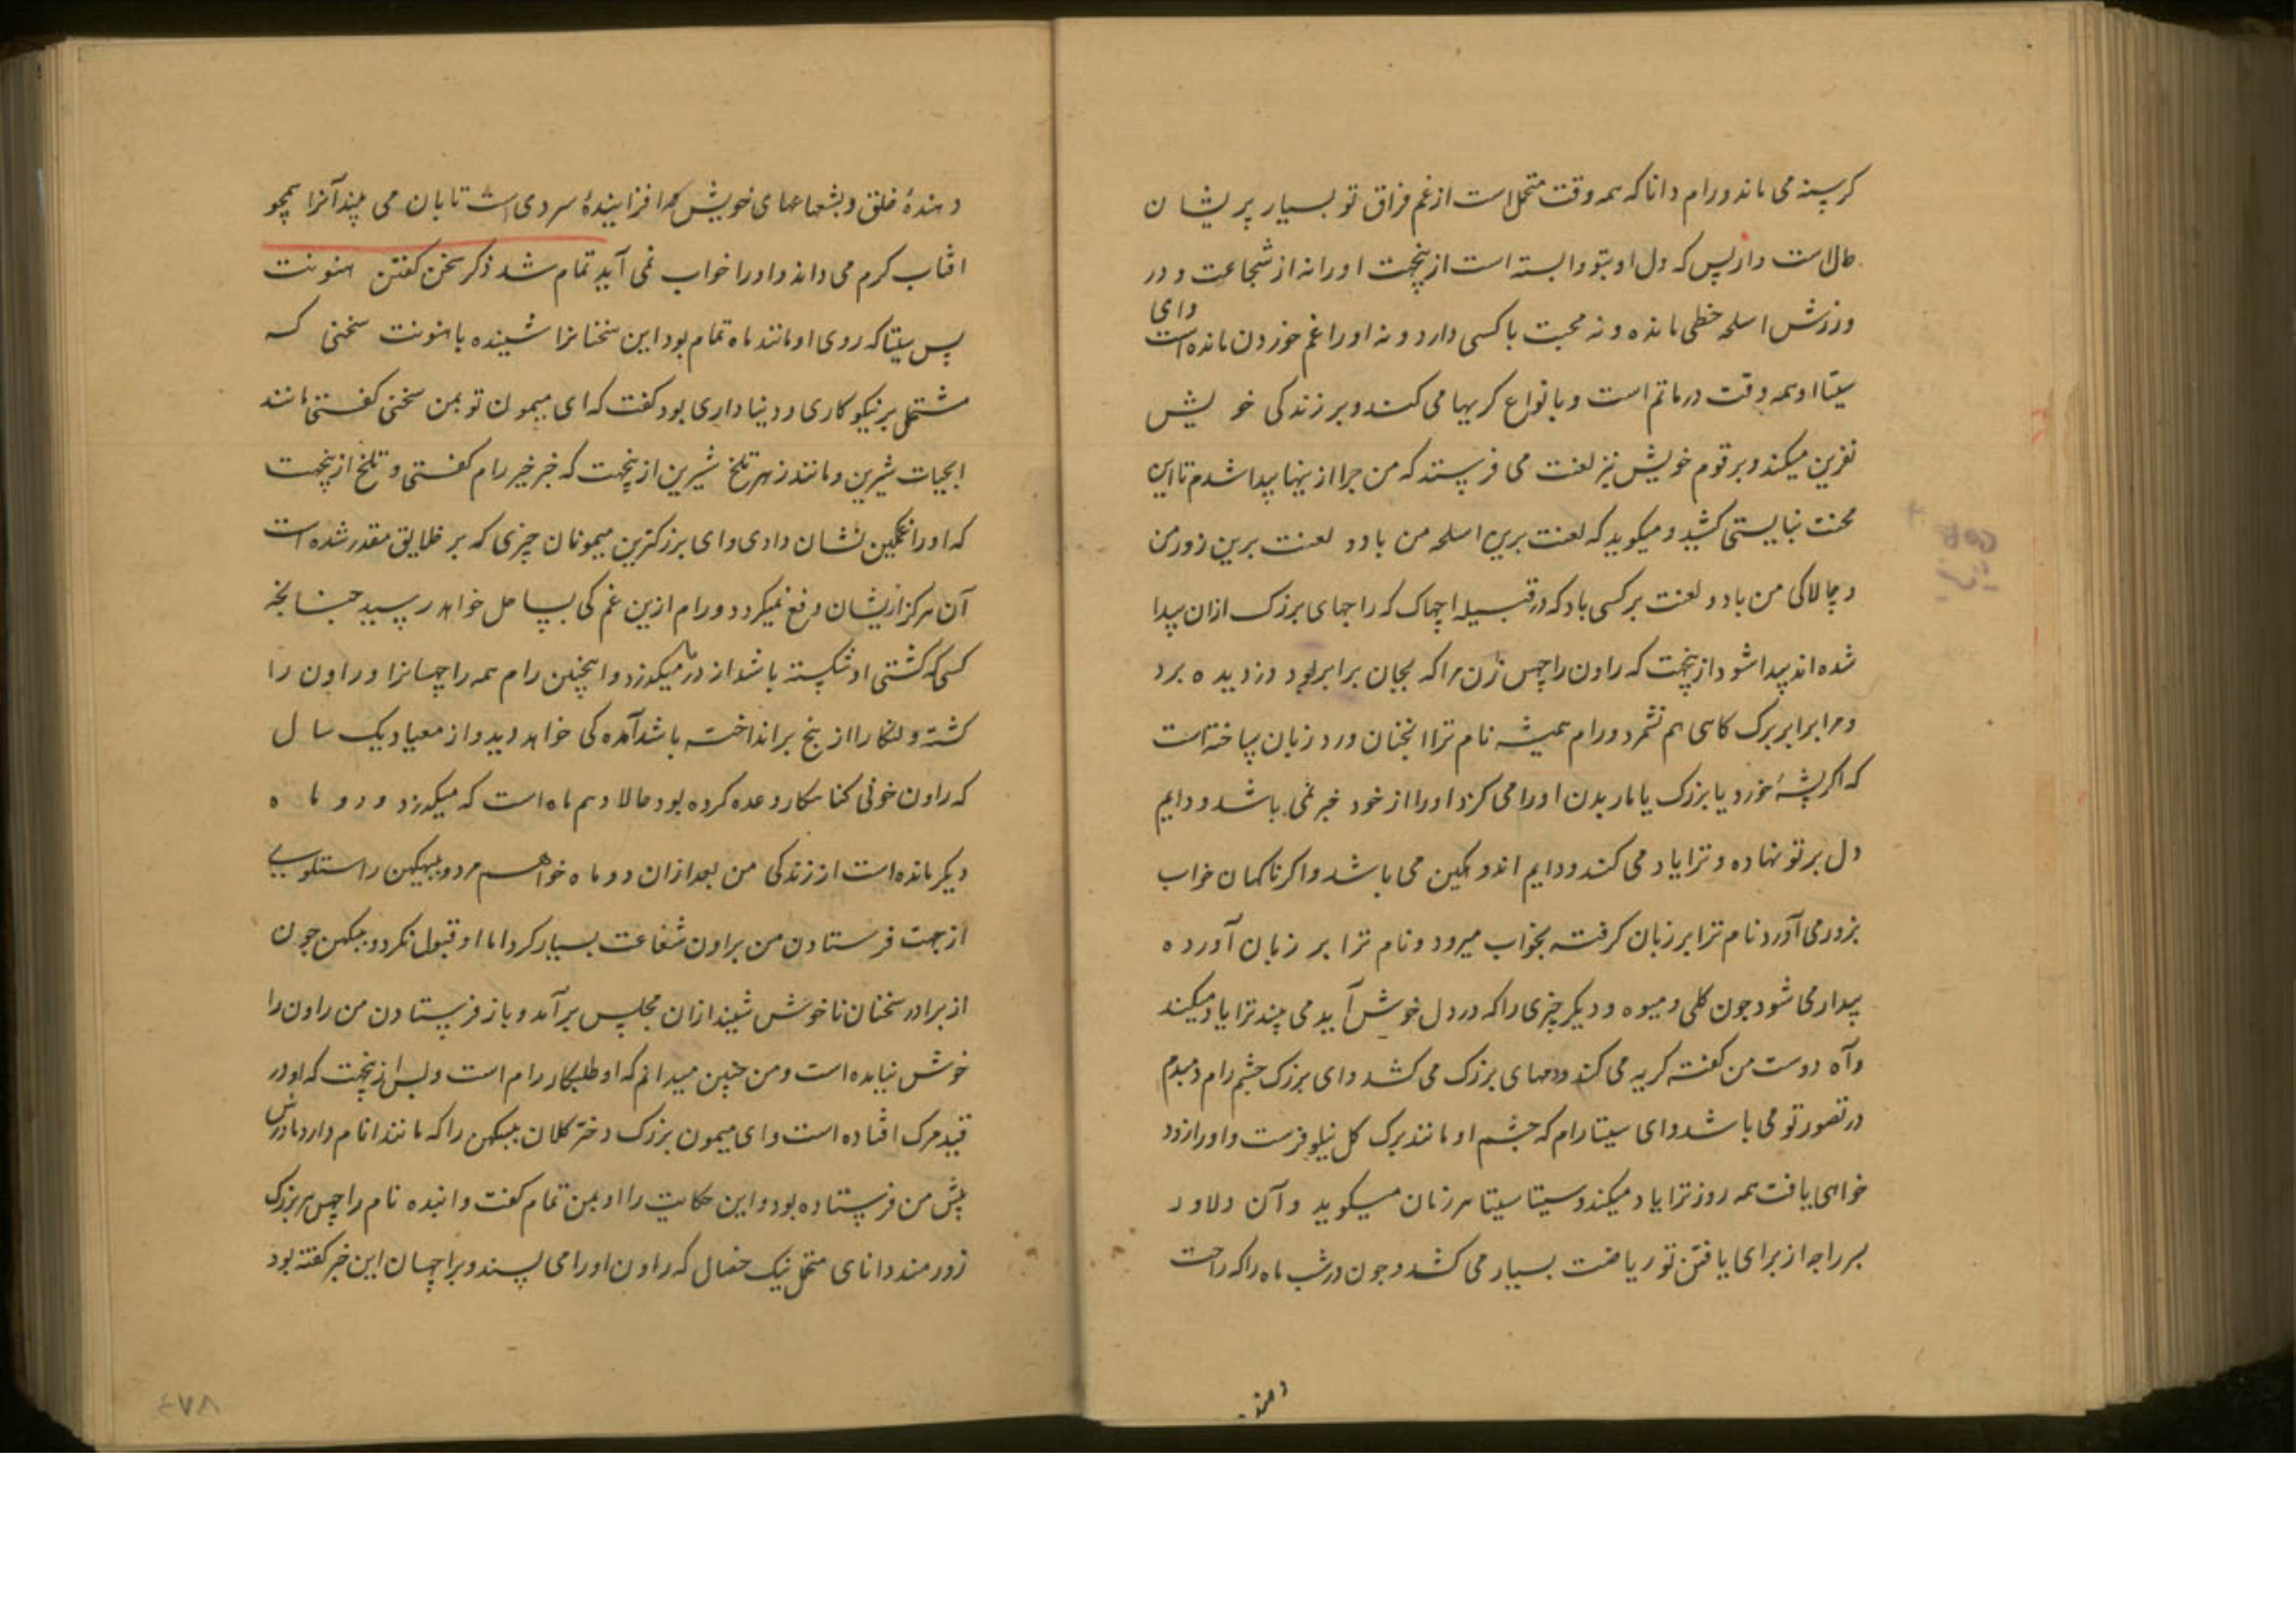 کرسنه می ماند و رام دانا که همه وقت متحمل است از غم فراق تو بسیار پریشان
حال است و از بس که دل او بتو وابسته است ازینجهت او را نه از شجاعت و در
ورزش اسلحه حظی مانده و نه محبت با کسی دارد و نه او را غم خوردن مانده است وای
سیتا او همه وقت در ماتم است و بانواع کریها می کند و بر زندکی خویش
نفرین میکند و بر قوم خویش نیز لعنت می فرستد که من چرا از ینها پیدا شدم تا این
محنت نبایستی کشید و میکوید که لعنت برین اسلحه من باد و لعنت برین زور من
و چالاکی من باد و لعنت بر کسی باد که در قبیله اچهاک که راجهای بزرک ازان پیدا
شده اند پیدا شود ازینجهت که راون راچهس زن مرا که بجان برابر بود دزدیده برد
و مرا برابر برک کاهی هم نشمرد و رام همیشه نام ترا انچنان ورد زبان ساخته است
که اکر پشهٔ خورد یا بزرک یا مار بدن او را می کزد او را از خود خبر نمی باشد و دایم
دل بر تو نهاده و ترا یاد می کند و دایم اندوهکین می باشد و اکر ناکهان خواب
بزور می آورد نام ترا بر زبان کرفته بخواب میرود و نام ترا بر زبان آورده
بیدار می شود چون کلی و میوه و دیکر چیزی را که در دل خوش آید می بیند ترا یاد میکند
و آه دوست من کفته کریه می کند و دمهای بزرک می کشد و ای بزرک چشم رام دمبدم
در تصور تو می باشد و ای سیتا رام که چشم او مانند برک کل نیلوفرست و او را زود
خواهی یافت همه روز ترا یاد میکند و سیتا سیتا هر زمان میکوید و آن دلاور
پسر راجه از برای یافتن تو ریاضت بسیار می کشد و چون در شب ماه را که راحت
دهنده
دهندهٔ خلق و بشعاعهای خویش که افزایندهٔ سردی است تابان می بیند آنرا همچو
افتاب کرم می داند و او را خواب نمی آید تمام شد ذکر سخن کفتن هنونت
پس سیتا که روی او مانند ماه تمام بود این سخنانرا شنیده با هنونت سخنی که
مشتمل بر نیکوکاری و دنیاداری بود کفت که ای میمون تو بمن سخنی کفتی مانند
ابحیات شیرین و مانند زهر تلخ شیرین ازینجهت که خبر خیر رام کفتی و تلخ ازینجهت
که او را غمکین نشان دادی و ای بزرکترین میمونان چیزی که بر خلایق مقدر شده است
آن هرکز ازیشان دفع نمیکردد و رام ازین غم کی بساحل خواهد رسید چنانچه
کسی که کشتی او شکسته باشد از دریا میکذرد و اینچنین رام همه راچهسانرا و راون را
کشته و لنکا را از بیخ برانداخته باشد آمده کی خواهد دید و از میعاد یک سال
که راون خونی کناهکار وعده کرده بود حالا دهم ماه است که میکذرد و دو ماه
دیکر مانده است از زندکی من بعد ازان دو ماه خواهم مرد و ببهیکهن راستکوی
از جهت فرستادن من براون شفاعت بسیار کرد اما او قبول نکرد و ببهیکهن چون
از برادر سخنان ناخوش شنید ازان مجلس برآمد و باز فرستادن من راون را
خوش نیامده است و من چنین میدانم که او طلبکار رام است و بس ازینجهت که او در
قید مرک افتاده است و ای میمون بزرک دختر کلان ببهیکهن را که مانند نام دارد مادرش
پیش من فرستاده بود و این حکایت را او بمن تمام کفت و ابنده نام راچهس بزرک
زورمند دانای متحمل نیک خصال که راون او را می پسند و براچهسان این خبر کفته بود
۴۷۸